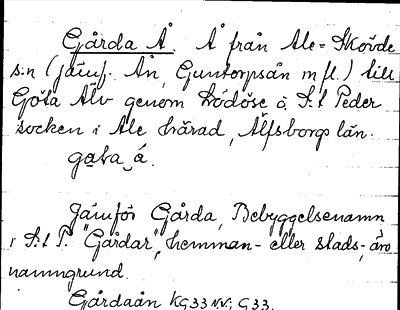 Gårda Å. Å från Ale-Skövde
s:n (jämf. Ån, Guntorpsån m fl.) till
Göta Älv genom Lödöse o. S:t Peder
socken i Ale härad, Älfsborgs län.
ga̲ṭa‿á.
Jämför Gårda, Bebyggelsenamn
i S:t P. "Gårdar, hemman- eller stads-,
namngrund.
Gårdaån KG33NV; G33.